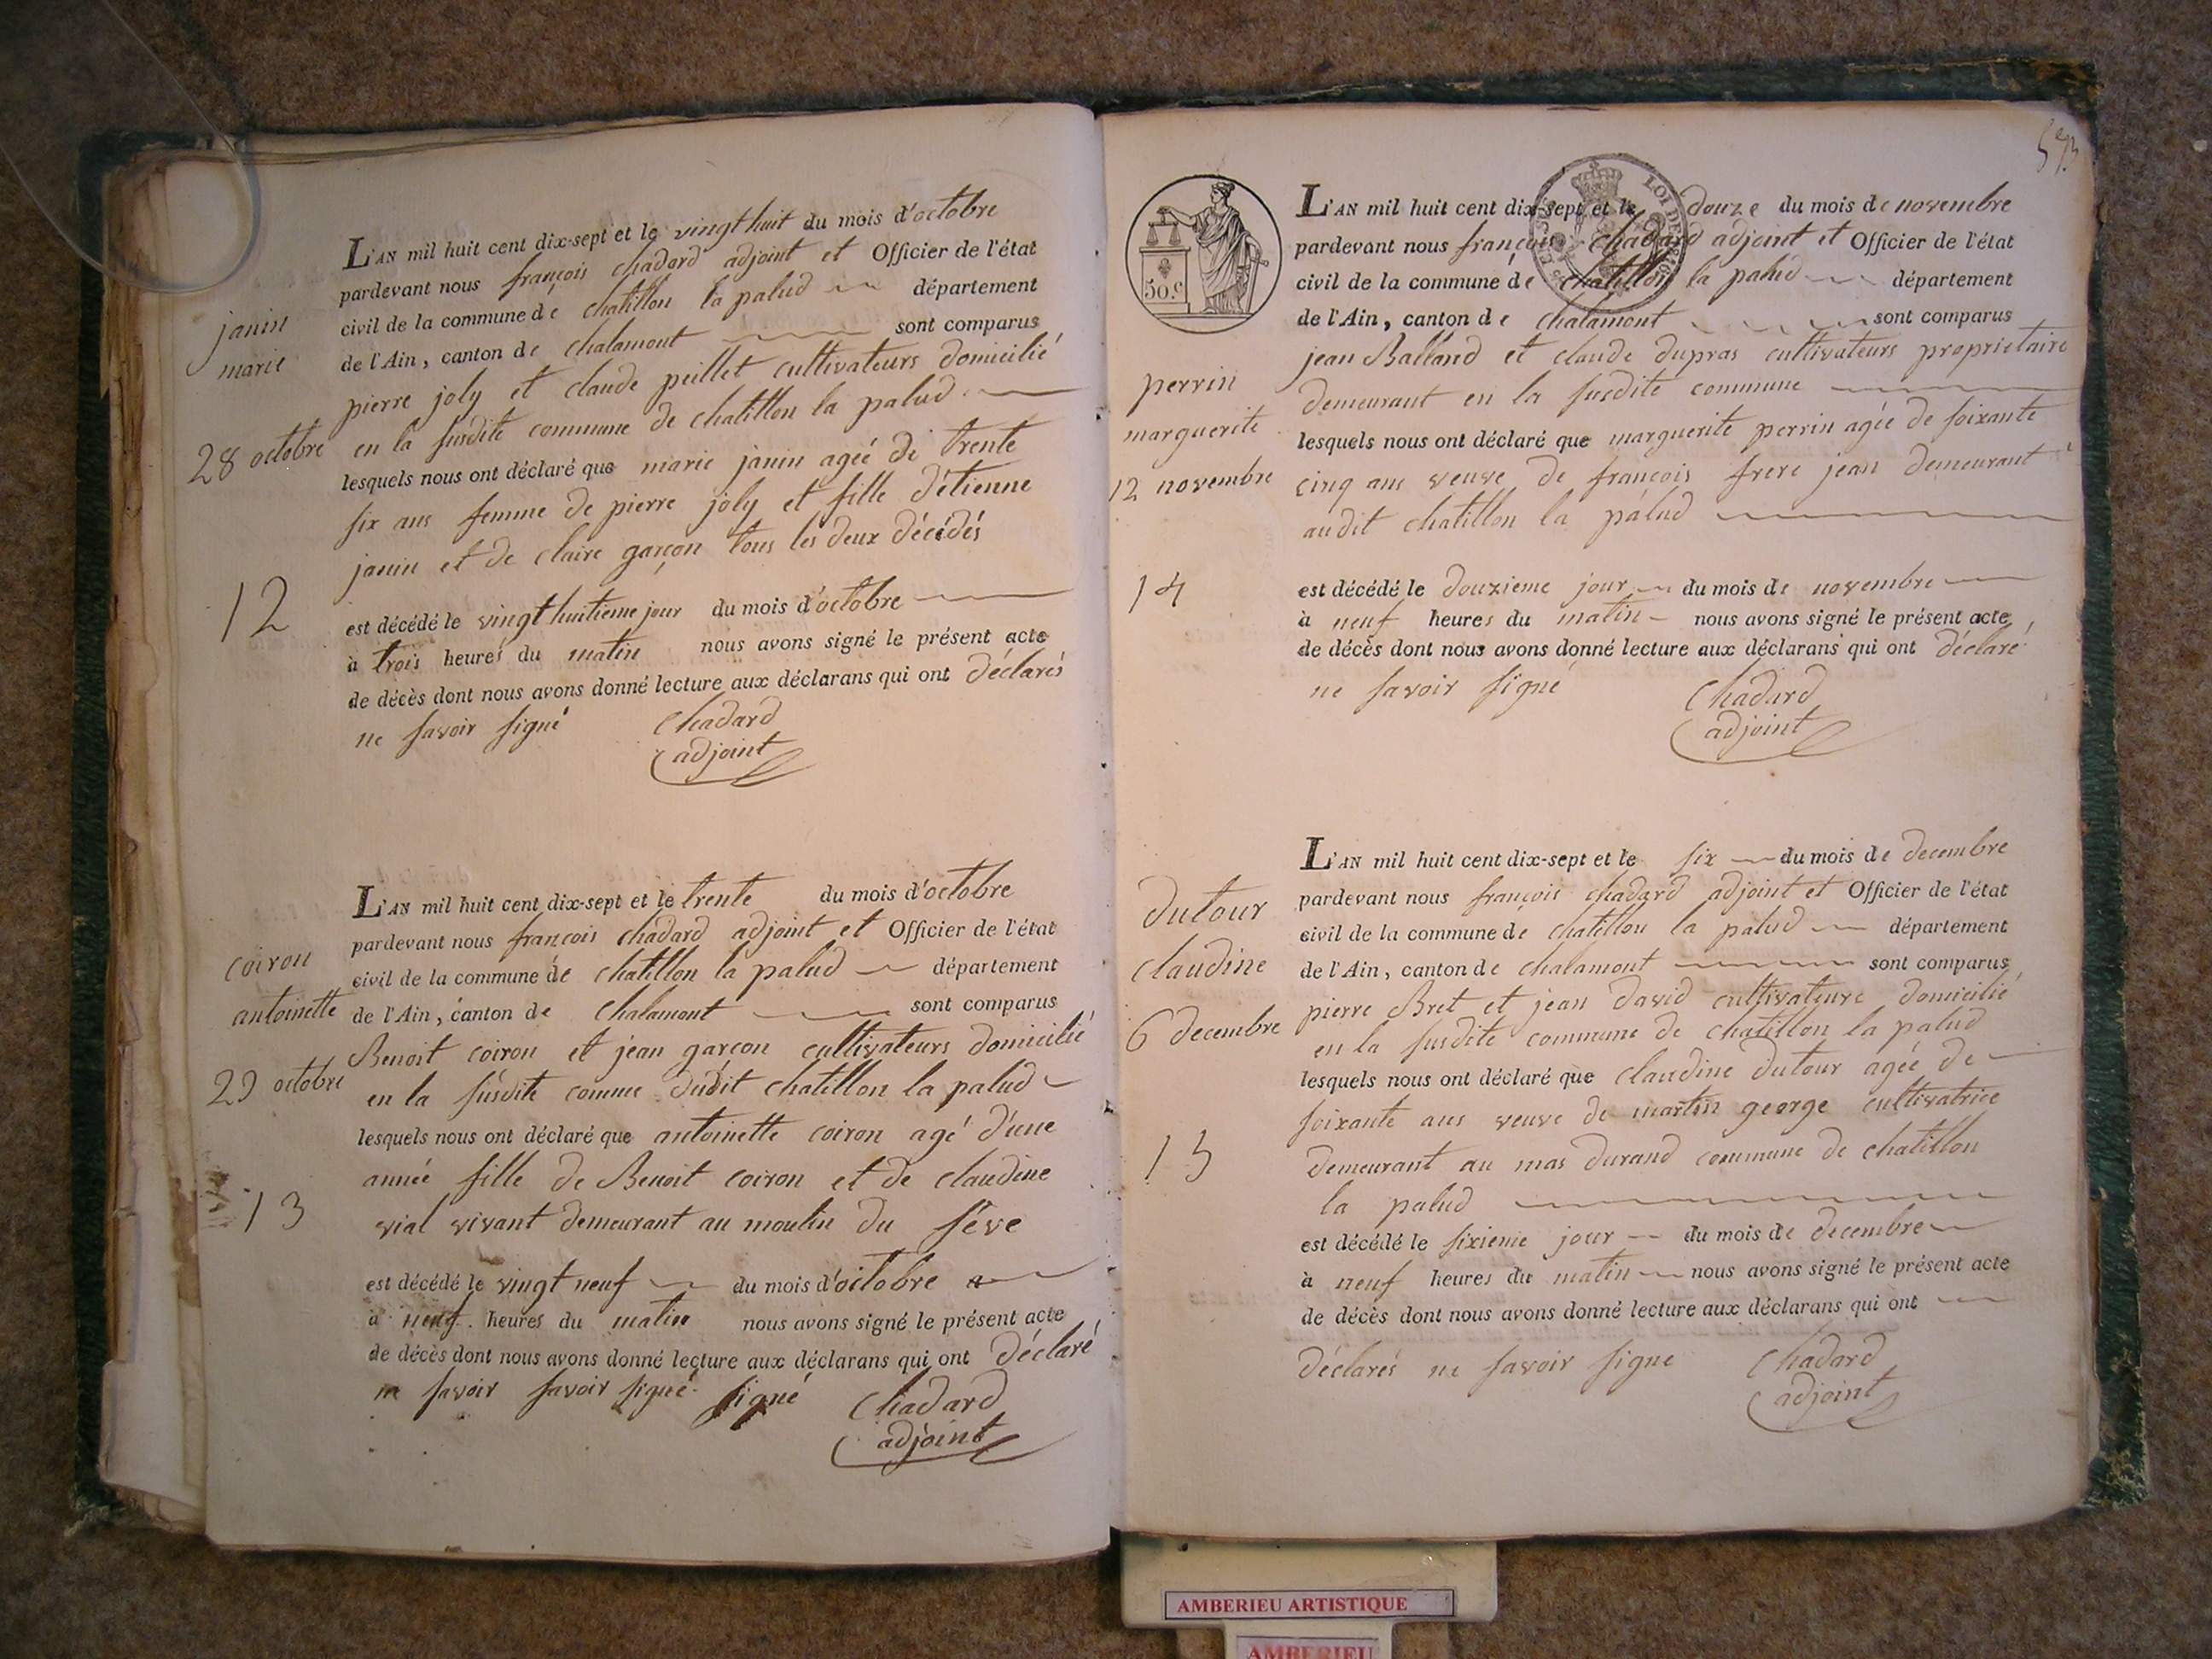 janin
marie
28 octobre
12
L'AN mil huit cent dix-sept et le vingt huit du mois d'octobre
pardevant nous françois chadard adjoint et Officier de l'état
civil de la commune de chatillon la palud département
de l'Ain, canton de chalamont sont comparus
pierre joly et claude peillet cultivateurs domicilié
en la susdite commune de chatillon la palud
lesquels nous ont déclaré que marie janin agée de trente
six ans femme de pierre joly et fille d'étienne
janin et de claire garçon tous les deux décédés
est décédé le vingt huitieme jour du mois d'octobre
à trois heures du matin nous avons signé le présent acte
de décès dont nous avons donné lecture aux déclarans qui ont déclarés
ne savoir signé Chadard
adjoint
coiron
antoinette
29 octobre
13
L'AN mil huit cent dix-sept et le trente du mois d'octobre
pardevant nous françois chadard adjoint et Officier de l'état
civil de la commune de chatillon la palud département
de l'Ain, canton de Chalamont sont comparus
Benoit coiron et jean garçon cultivateurs domicilié
en la susdite comme dudit chatillon la palud
lesquels nous ont déclaré que antoinette coiron agé d'une
année fille de Benoit coiron et de claudine
vial vivant demeurant au moulin du séve
est décédé le vingt neuf du mois d'octobre
à neuf heures du matin nous avons signé le présent acte
de décès dont nous avons donné lecture aux déclarans qui ont déclaré
ne savoir savoir signé signé Chadard
adjoint
573
50.c
LOI DE
perrin
marguerite
12 novembre
14
L'AN mil huit cent dix-sept et le douze du mois de novembre
pardevant nous françois chadard adjoint et Officier de l'état
civil de la commune de chatillon la palud département
de l'Ain, canton de chalamont sont comparus
jean Balland et claude dupras cultivateurs proprietaire
demeurant en la susdite commune
lesquels nous ont déclaré que marguerite perrin agée de soixante
cinq ans veuve de françois frere jean demeurant
audit chatillon la palud
est décédé le douzieme jour du mois de novembre
à neuf heures du matin nous avons signé le présent acte
de décès dont nous avons donné lecture aux déclarans qui ont déclaré
ne savoir signé Chadard
adjoint
dutour
claudine
6 decembre
15
L'AN mil huit cent dix-sept et le six du mois de decembre
pardevant nous françois chadard adjoint et Officier de l'état
civil de la commune de chatillon la palud département
de l'Ain, canton de chalamont sont comparus
pierre Bret et jean david cultivateurs domicilié
en la susdite commune de chatillon la palud
lesquels nous ont déclaré que claudine dutour agée de
soixante ans veuve de martin george cultivatrice
demeurant au mas durand commune de chatillon
la palud
est décédé le sixieme jour du mois de decembre
à neuf heures du matin nous avons signé le présent acte
de décès dont nous avons donné lecture aux déclarans qui ont
déclarés ne savoir signe Chadard
adjoint
AMBERIEU ARTISTIQUE
AMBERIEU